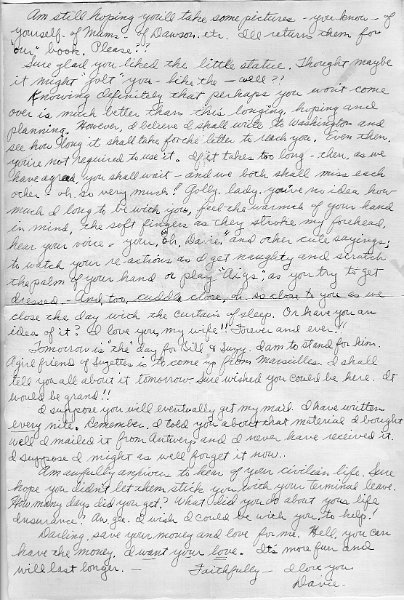 Am still hoping you'll take some pictures - you know - of
yourself - of Mums, of Dawson, etc. I'll return them for
"our" book. Please??
Sure glad you liked the little statue. Thought maybe
it might "jolt" you - like the - well??
Knowing definitely that perhaps you won't come
over is much better than this longing, hoping and
planning. However, I believe I shall write to Washington and
see how long it shall take for the letter to reach you. Even then,
you're not required to use it. If it takes too long - then, as we
have agreed you shall wait - and we both shall miss each
other - oh so very much! Golly, lady, you've no idea how
much I long to be with you, feel the warmth of your hand
in mine, the soft fingers as they stroke my forehead,
hear your voice - your, "oh, Davie," and other cute sayings;
to watch your reactions as I get naughty and scratch
the palm of your hand or play "digs", as you try to get
dressed. - And too, cuddle close, oh so close to you as we
close the day with the curtain of sleep. Or have you an
idea of it? I love you, my wife!! Forever and ever!!
Tomorrow is "the" day for Bill & Suzy. I am to stand for him.
A girl friend of Suzette's is to come up from Marseilles. I shall
tell you all about it tomorrow. Sure wished you could be here. It
would be grand!!
I suppose you will eventually get my mail. I have written
every nite. Remember, I told you about that material I bought
well I mailed it from Antwerp and I never have received it.
I suppose I might as well forget it now.
Am awfully anxious to hear of your civilian life. Sure
hope you didn't let them stick you with your terminal leave.
How many days did you get? What did you do about your life
insurance? Aw, gee. I wish I could be with you, to help!
Darling, save your money and love for me. Hell, you can
have the money, I want your love. It's more fun and
will last longer. - Faithfully - I love you
Davie.